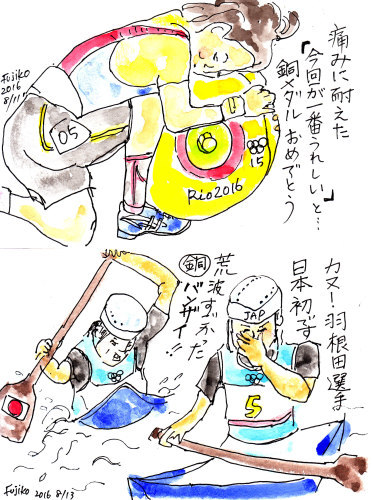 痛みに耐えた
「今回が一番うれしい」と…
銅メダル おめでとう
Fujiko
2016
8/11
05
Rio2016
15
カヌー羽根田選手
日本初です
荒波すごかった
銅 バンザーイ!!
JAP
5
Fujiko 2016 8/13